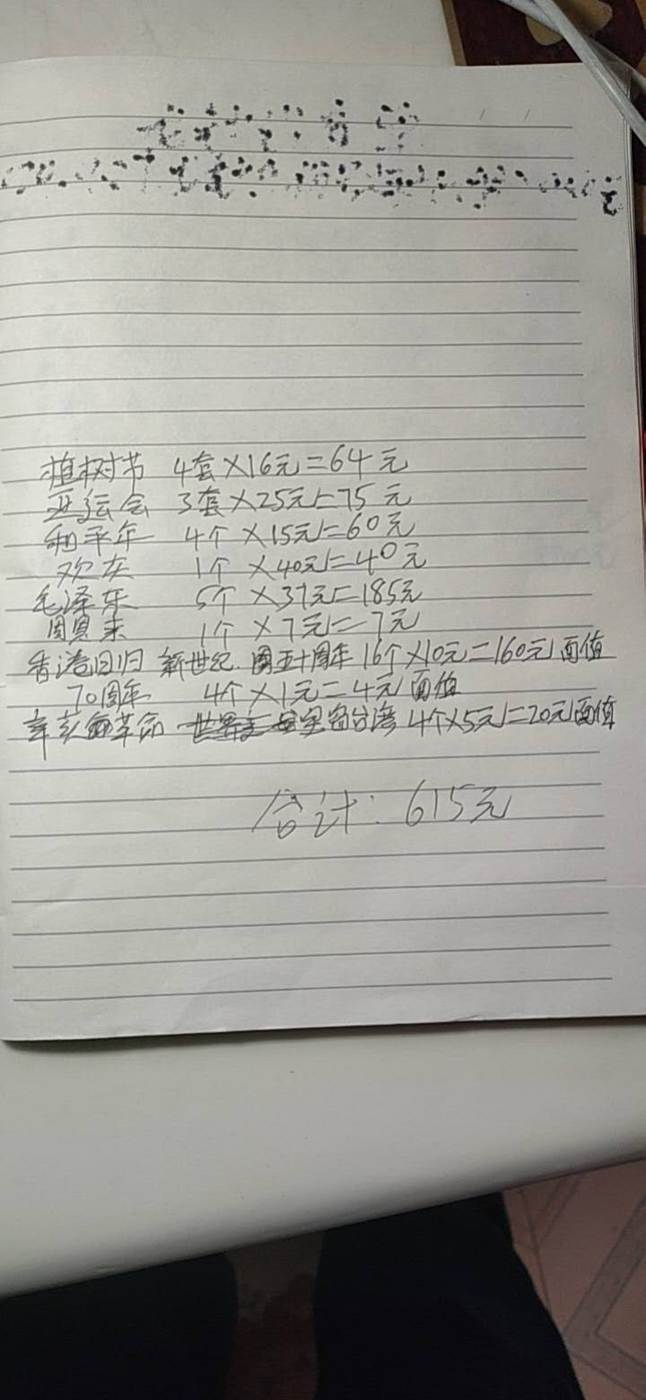 植树节 4套×16元=64元
亚运会 3套×25元=75元
和平年 4个×15元=60元
欢庆 1个×40元=40元
毛泽东 5个×37元=185元
周恩来 1个×7元=7元
香港回归 新世纪 国五十周年 16个×10元=160元面值
70周年 4个×1元=4元面值
辛亥革命 宝岛台湾 4个×5元=20元面值
合计:615元